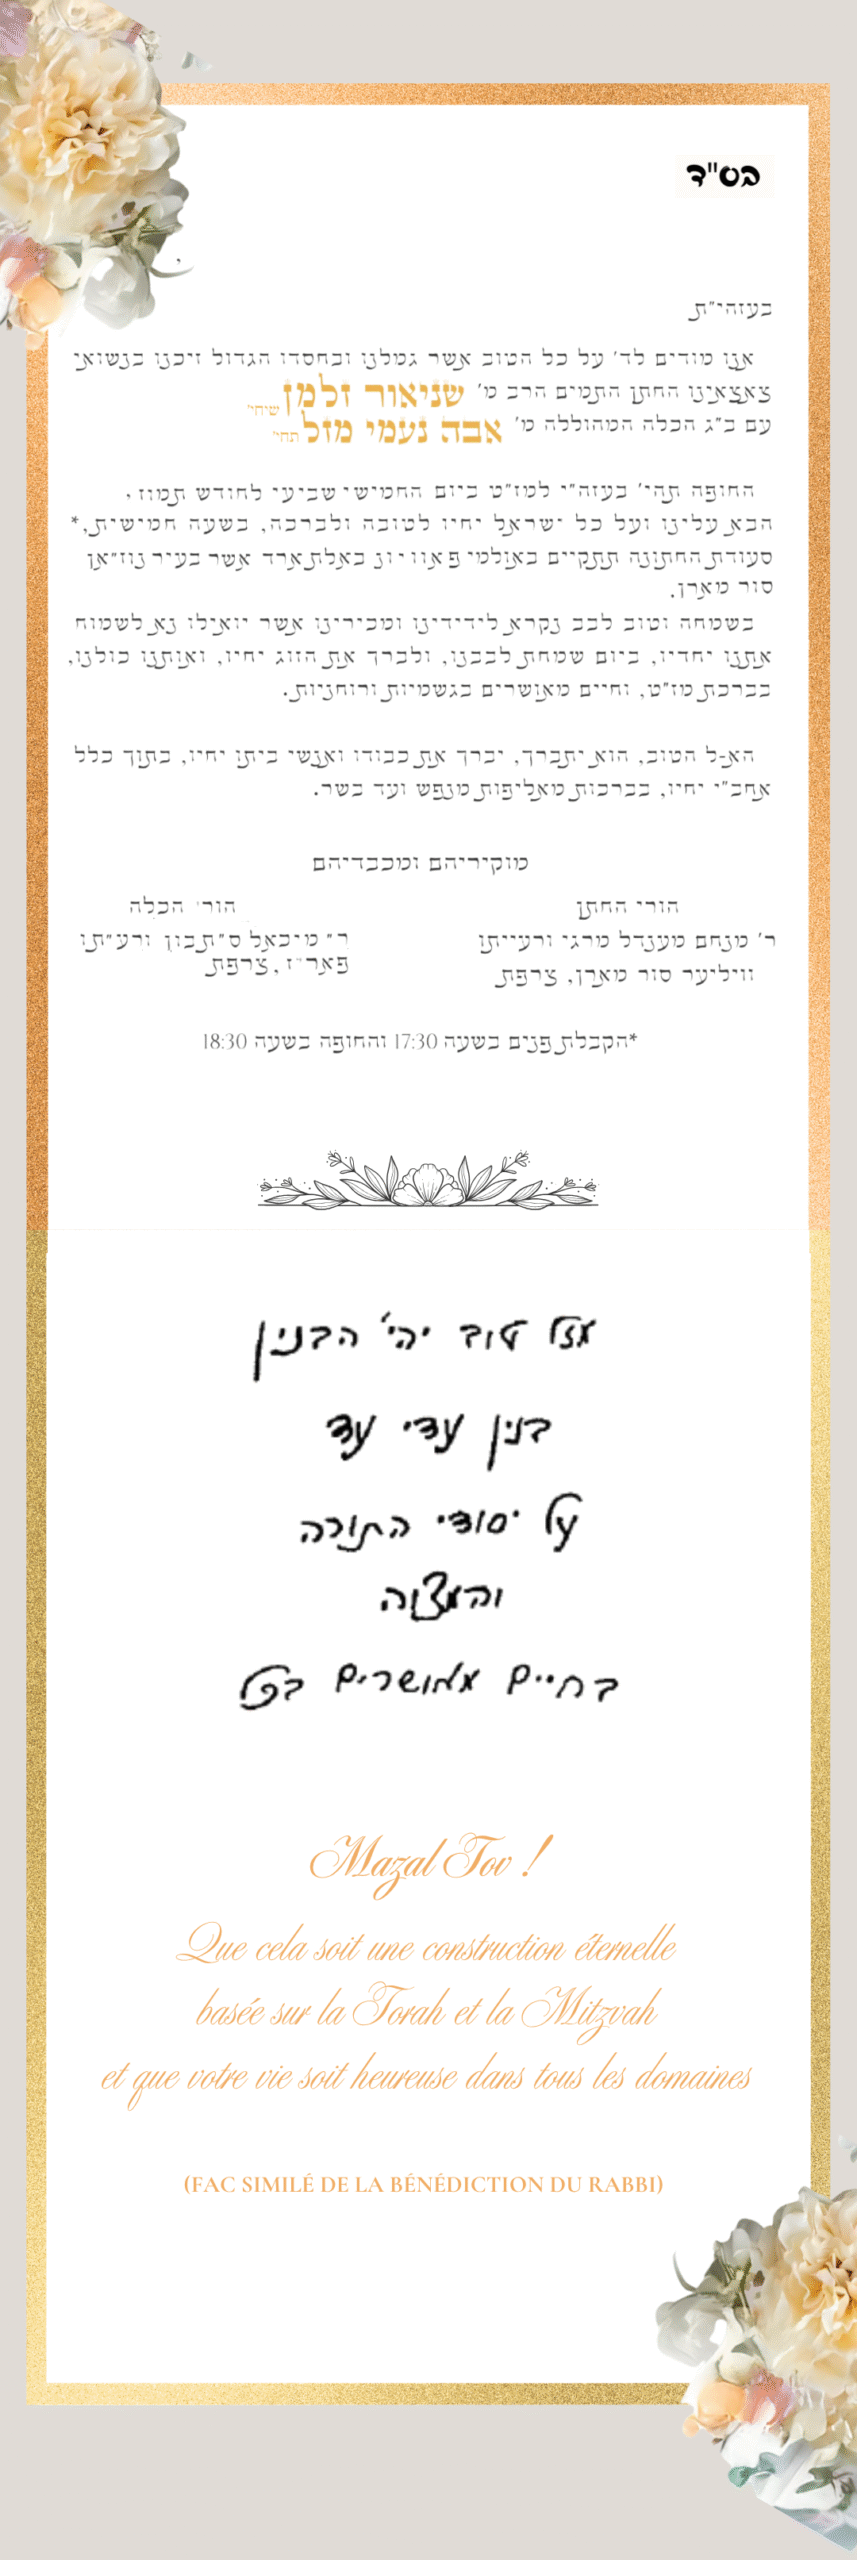 בס"ד
בעזהי"ת
אנו מודים לד' על כל הטוב אשר גמלנו ובחסדו הגדול זיכנו בנשואי
צאצאינו החתן התמים הרב מ' שניאור זלמן שיחי'
עם ב"ג הכלה המהוללה מ' אבה נעמי מזל תחי'
החופה תהי' בעזה"י למז"ט ביום החמישי שביעי לחודש תמוז,
הבא עלינו ועל כל ישראל יחיו לטובה ולברכה, בשעה חמישית,*
סעודת החתונה תתקיים באולמי באלת ארד אשר בעיר
סור מארן.
בשמחה וטוב לבב נקרא לידידינו ומכירינו אשר יואילו נא לשמוח
אתנו יחדיו, ביום שמחת לבבנו, ולברך את הזוג יחיו, ואותנו כולנו,
בברכת מז"ט, וחיים מאושרים בגשמיות ורוחניות.
הא-ל הטוב, הוא יתברך, יברך את כבודו ואנשי ביתו יחיו, בתוך כלל
אחב"י יחיו, בברכות מאליפות מנפש ועד בשר.
מוקיריהם ומכבדיהם
הורי החתן
ר' מנחם מענדל מרגי ורעייתו
וויליער סור מארן, צרפת
הורי הכלה
מיכאל
צרפת
*הקבלת פנים בשעה 17:30 והחופה בשעה 18:30
מזל טוב יהי' הבנין
בנין עדי עד
על יסודי התורה
והמצוה
בחיים מאושרים בכל
Mazal Tov !
Que cela soit une construction éternelle
basée sur la Torah et la Mitzvah
et que votre vie soit heureuse dans tous les domaines
(FAC SIMILÉ DE LA BÉNÉDICTION DU RABBI)